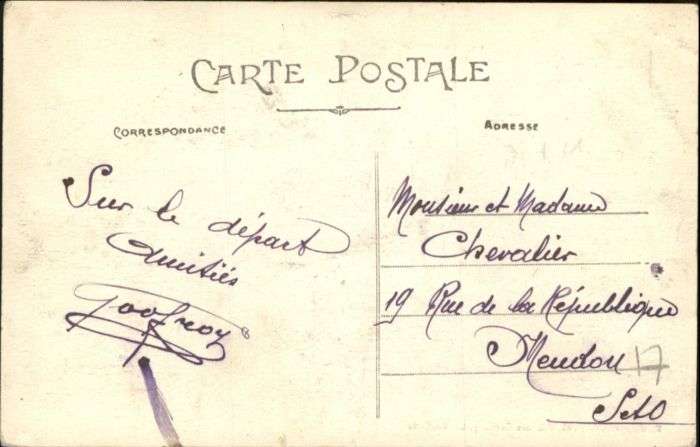 CARTE POSTALE
CORRESPONDANCE
ADRESSE
Sur le départ
Amitiés
Godfroy
Monsieur et Madame
Chevalier
19 Rue de la République
Meudon
S et O
17